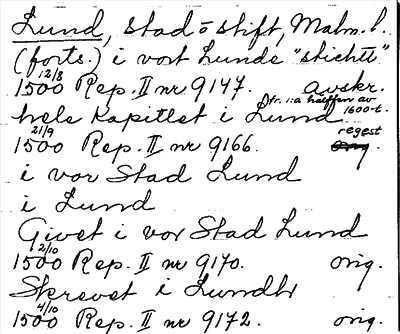 Lund, stad o stift, Malm. l.
(forts.) i vort Lunde "stichtt"
12/8
1500 Rep. II nr 9147. avskr.
fr. 1:a hälften av
1600-t.
hele Kapitlet i Lund
21/9
regest
1500 Rep. II nr 9166. orig.
i vor Stad Lund
i Lund
Givet i vor Stad Lund
2/10
1500 Rep. II nr 9170. orig.
Skrevet i Lund
4/10
1500 Rep. II nr 9172. orig.